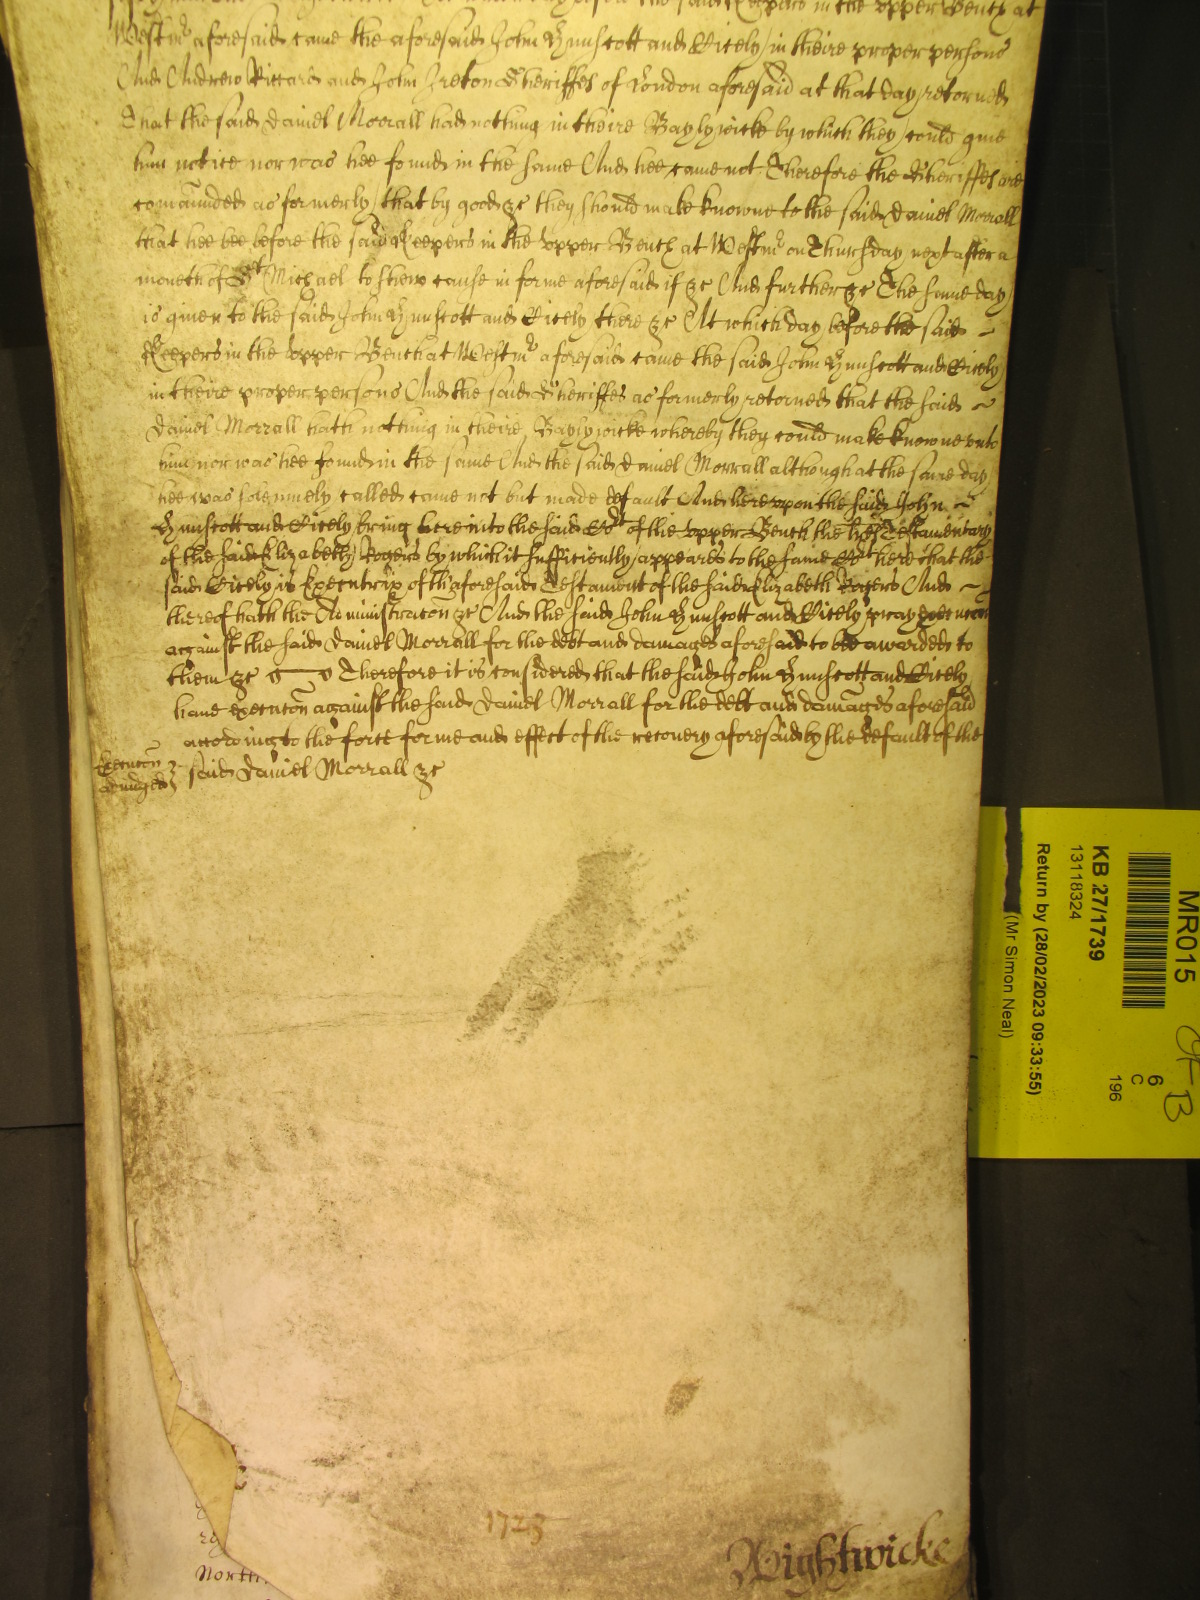 in the Upper Bench at
Westmr aforesaid came the aforesaid John Hunscott and Cicely in theire proper persons
And Andrew Riccard and John Ireton Sheriffes of London aforesaid at that day retorned
That the said Daniel Morrall had nothing in theire Baylywicke by which they could give
him notice nor was hee found in the same And hee came not Therefore the Sheriffes are
comaunded as formerly that by good &c they should make knowne to the said Daniel Morrall
that hee bee before the said Keepers in the Upper Bench at Westmr on Thursday next after a
moneth of St Michael to shew cause in forme aforesaid if &c And further &c The same day
is given to the said John Hunscott and Cicely there &c At which day before the said
Keepers in the Upper Bench at Westmr aforesaid came the said John Hunscott and Cicely
in theire proper persons And the said Sheriffes as formerly retorned that the said
Daniel Morrall hath nothing in theire Baylywicke whereby they could make knowne unto
him nor was hee found in the same And the said Daniel Morrall although at the same day
hee was solemnely called came not but made default And hereupon the said John
Hunscott and Cicely bring here into the said Cort of the Upper Bench the lres Testamentary
of the said Elizabeth Rogers by which it sufficiently appeares to the same Cort here that the
said Cicely is Executrix of th'aforesaid Testament of the said Elizabeth Rogers And
thereof hath the Administracon &c And the said John Hunscott and Cicely pray execucon
against the said Daniel Morrall for the debt and damages aforesaid to bee awarded to
them &c Therefore it is considered that the said John Hunscott and Cicely
have execucon against the said Daniel Morrall for the debt and damages aforesaid
according to the force forme and effect of the recovery aforesaid by the default of the
Execucon
adiudged
said Daniel Morrall &c
MR015
KB 27/1739
13118324
Return by (28/02/2023 09:33:55)
(Mr Simon Neal)
6
C
196
1723
Wightwicke